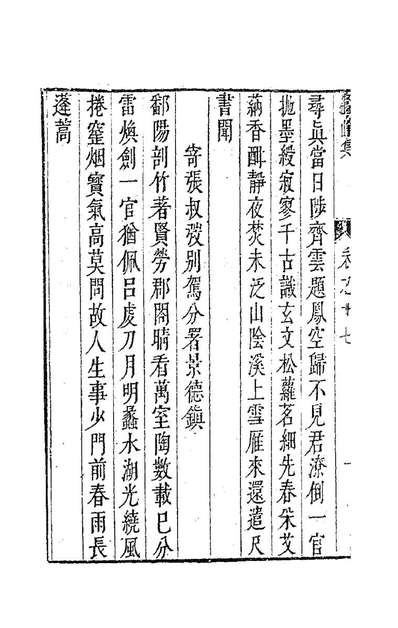 集
卷之十七
尋真當日陟齊雲題鳳空歸不見君潦倒一官
拖墨綬寂寥千古識玄文松蘿茗細先春采艾
蒳香酣靜夜焚未泛山陰溪上雪雁來還遣尺
書聞
寄張叔弢別駕分署景德鎮
鄱陽剖竹著賢勞郡閣晴看萬室陶數載已分
雷煥劍一官猶佩呂虔刀月明蠡水湖光繞風
捲窰烟寶氣高莫問故人生事少門前春雨長
蓬蒿